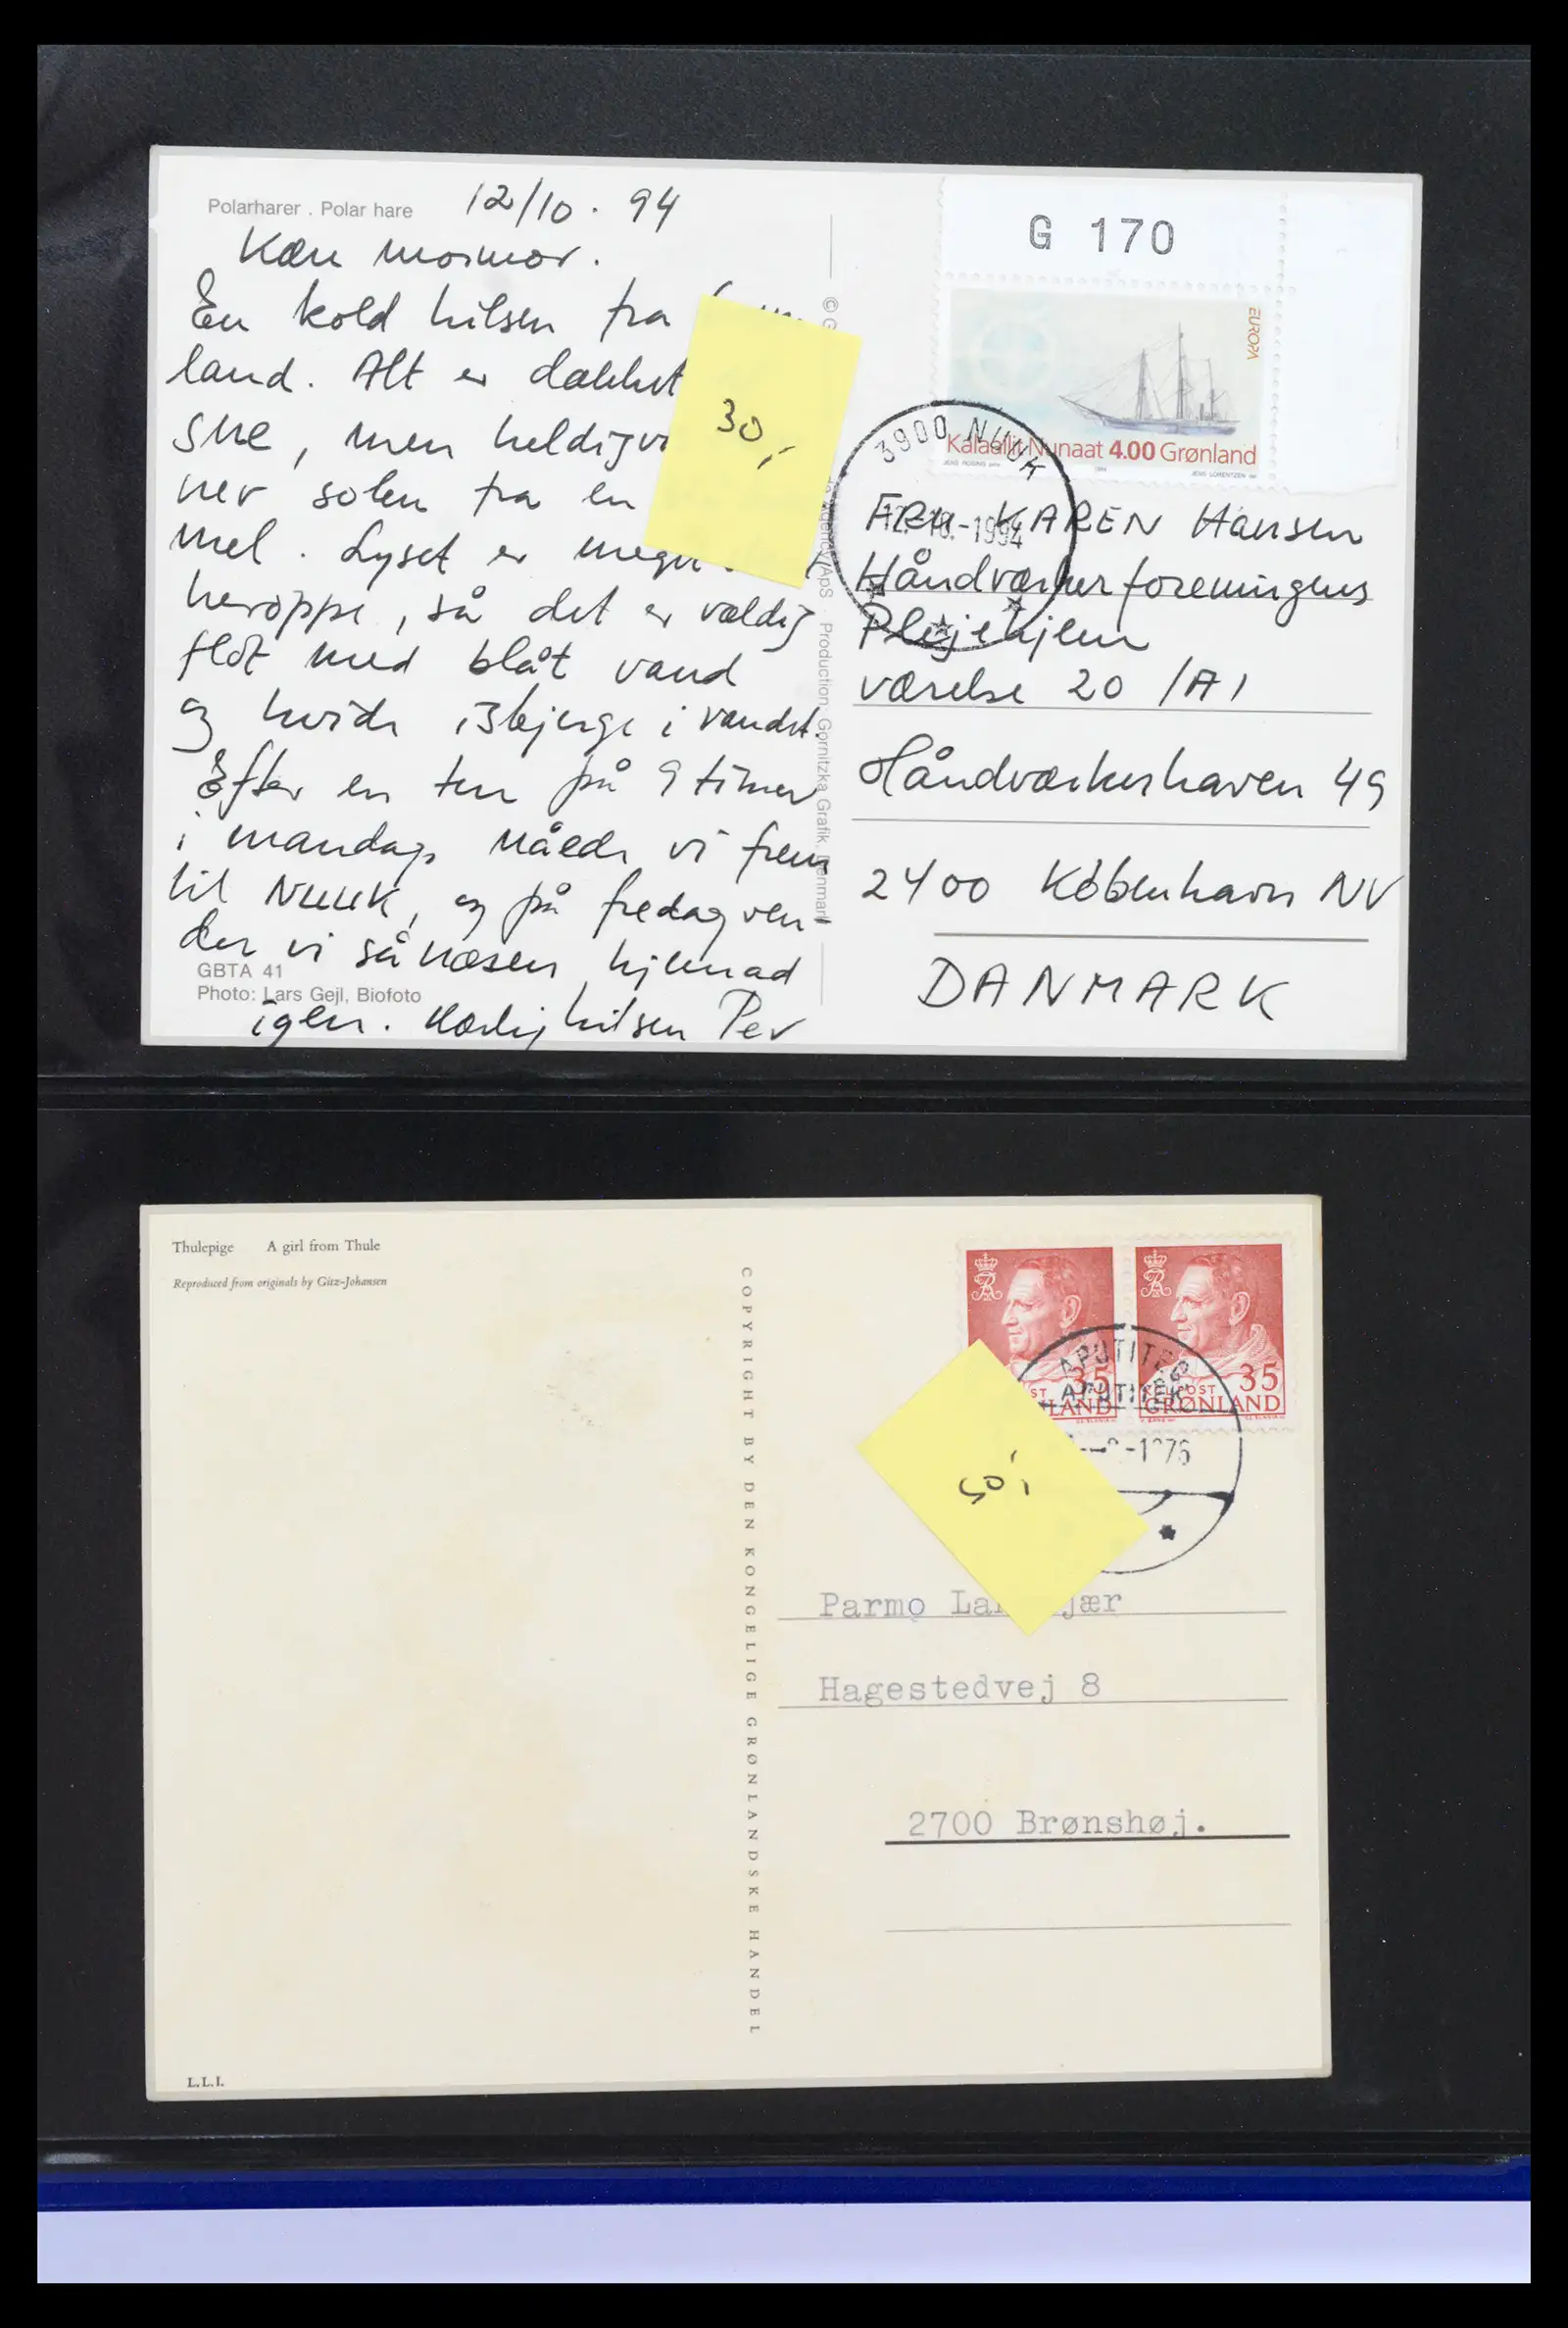 Polarharer . Polar hare
12/10. 94
Kære mormor.
En kold hilsen fra
land. Alt er dækket
sne, men heldigvi
ner solen fra en
mel. Lyset er meget
heroppe, så det er vældig
flot med blåt vand
og hvide isbjerge i vandet.
Efter en tur på 9 timer
i mandags nåede vi frem
til NUUK, og på fredag ven-
der vi så næsen hjemad
igen. Kærlig hilsen Per
GBTA 41
Photo: Lars Gejl, Biofoto
30,-
Agency/ApS . Production: Gornitzka Grafik, Denmark
G 170
EUROPA
Kalaallit Nunaat 4.00 Grønland
JENS ROSING pinx. 1994 JENS LORENTZEN del.
3900 NUUK
12.-10.-1994
FRU KAREN Hansen
Håndværkerforeningens
Plejehjem
værelse 20 /A1
Håndværkerhaven 49
2400 København NV
DANMARK
Thulepige A girl from Thule
Reproduced from originals by Gitz-Johansen
COPYRIGHT BY DEN KONGELIGE GRØNLANDSKE HANDEL
35
ST
LAND
35
KGL POST
GRØNLAND
APUTITEQ
APUTITEK
50,-
Parmo La jær
Hagestedvej 8
2700 Brønshøj.
L.L.I.